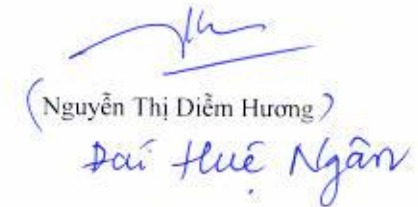 (Nguyễn Thị Diễm Hương)
Đai Huệ Ngân